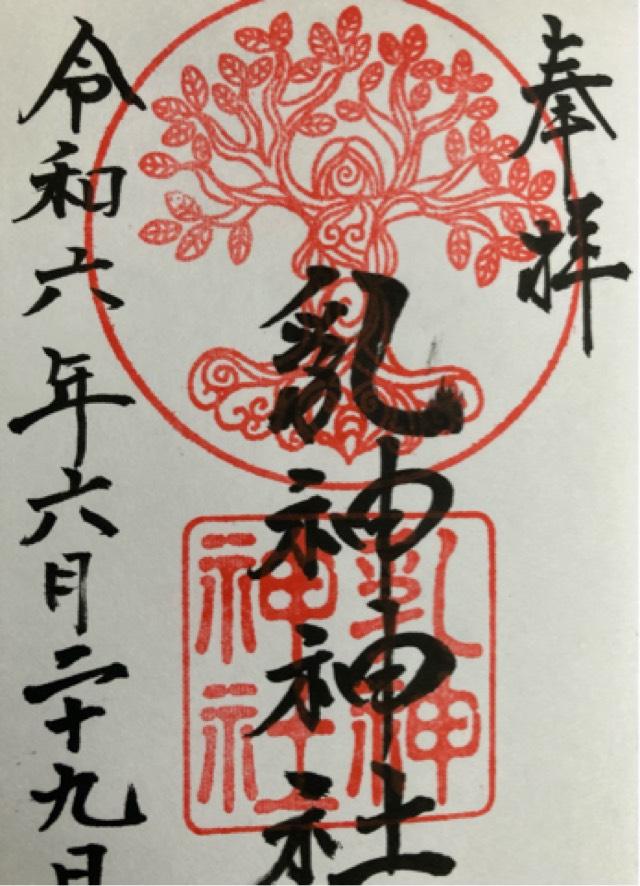 奉拝
乳神神社
乳神
神社
令和六年六月二十九日